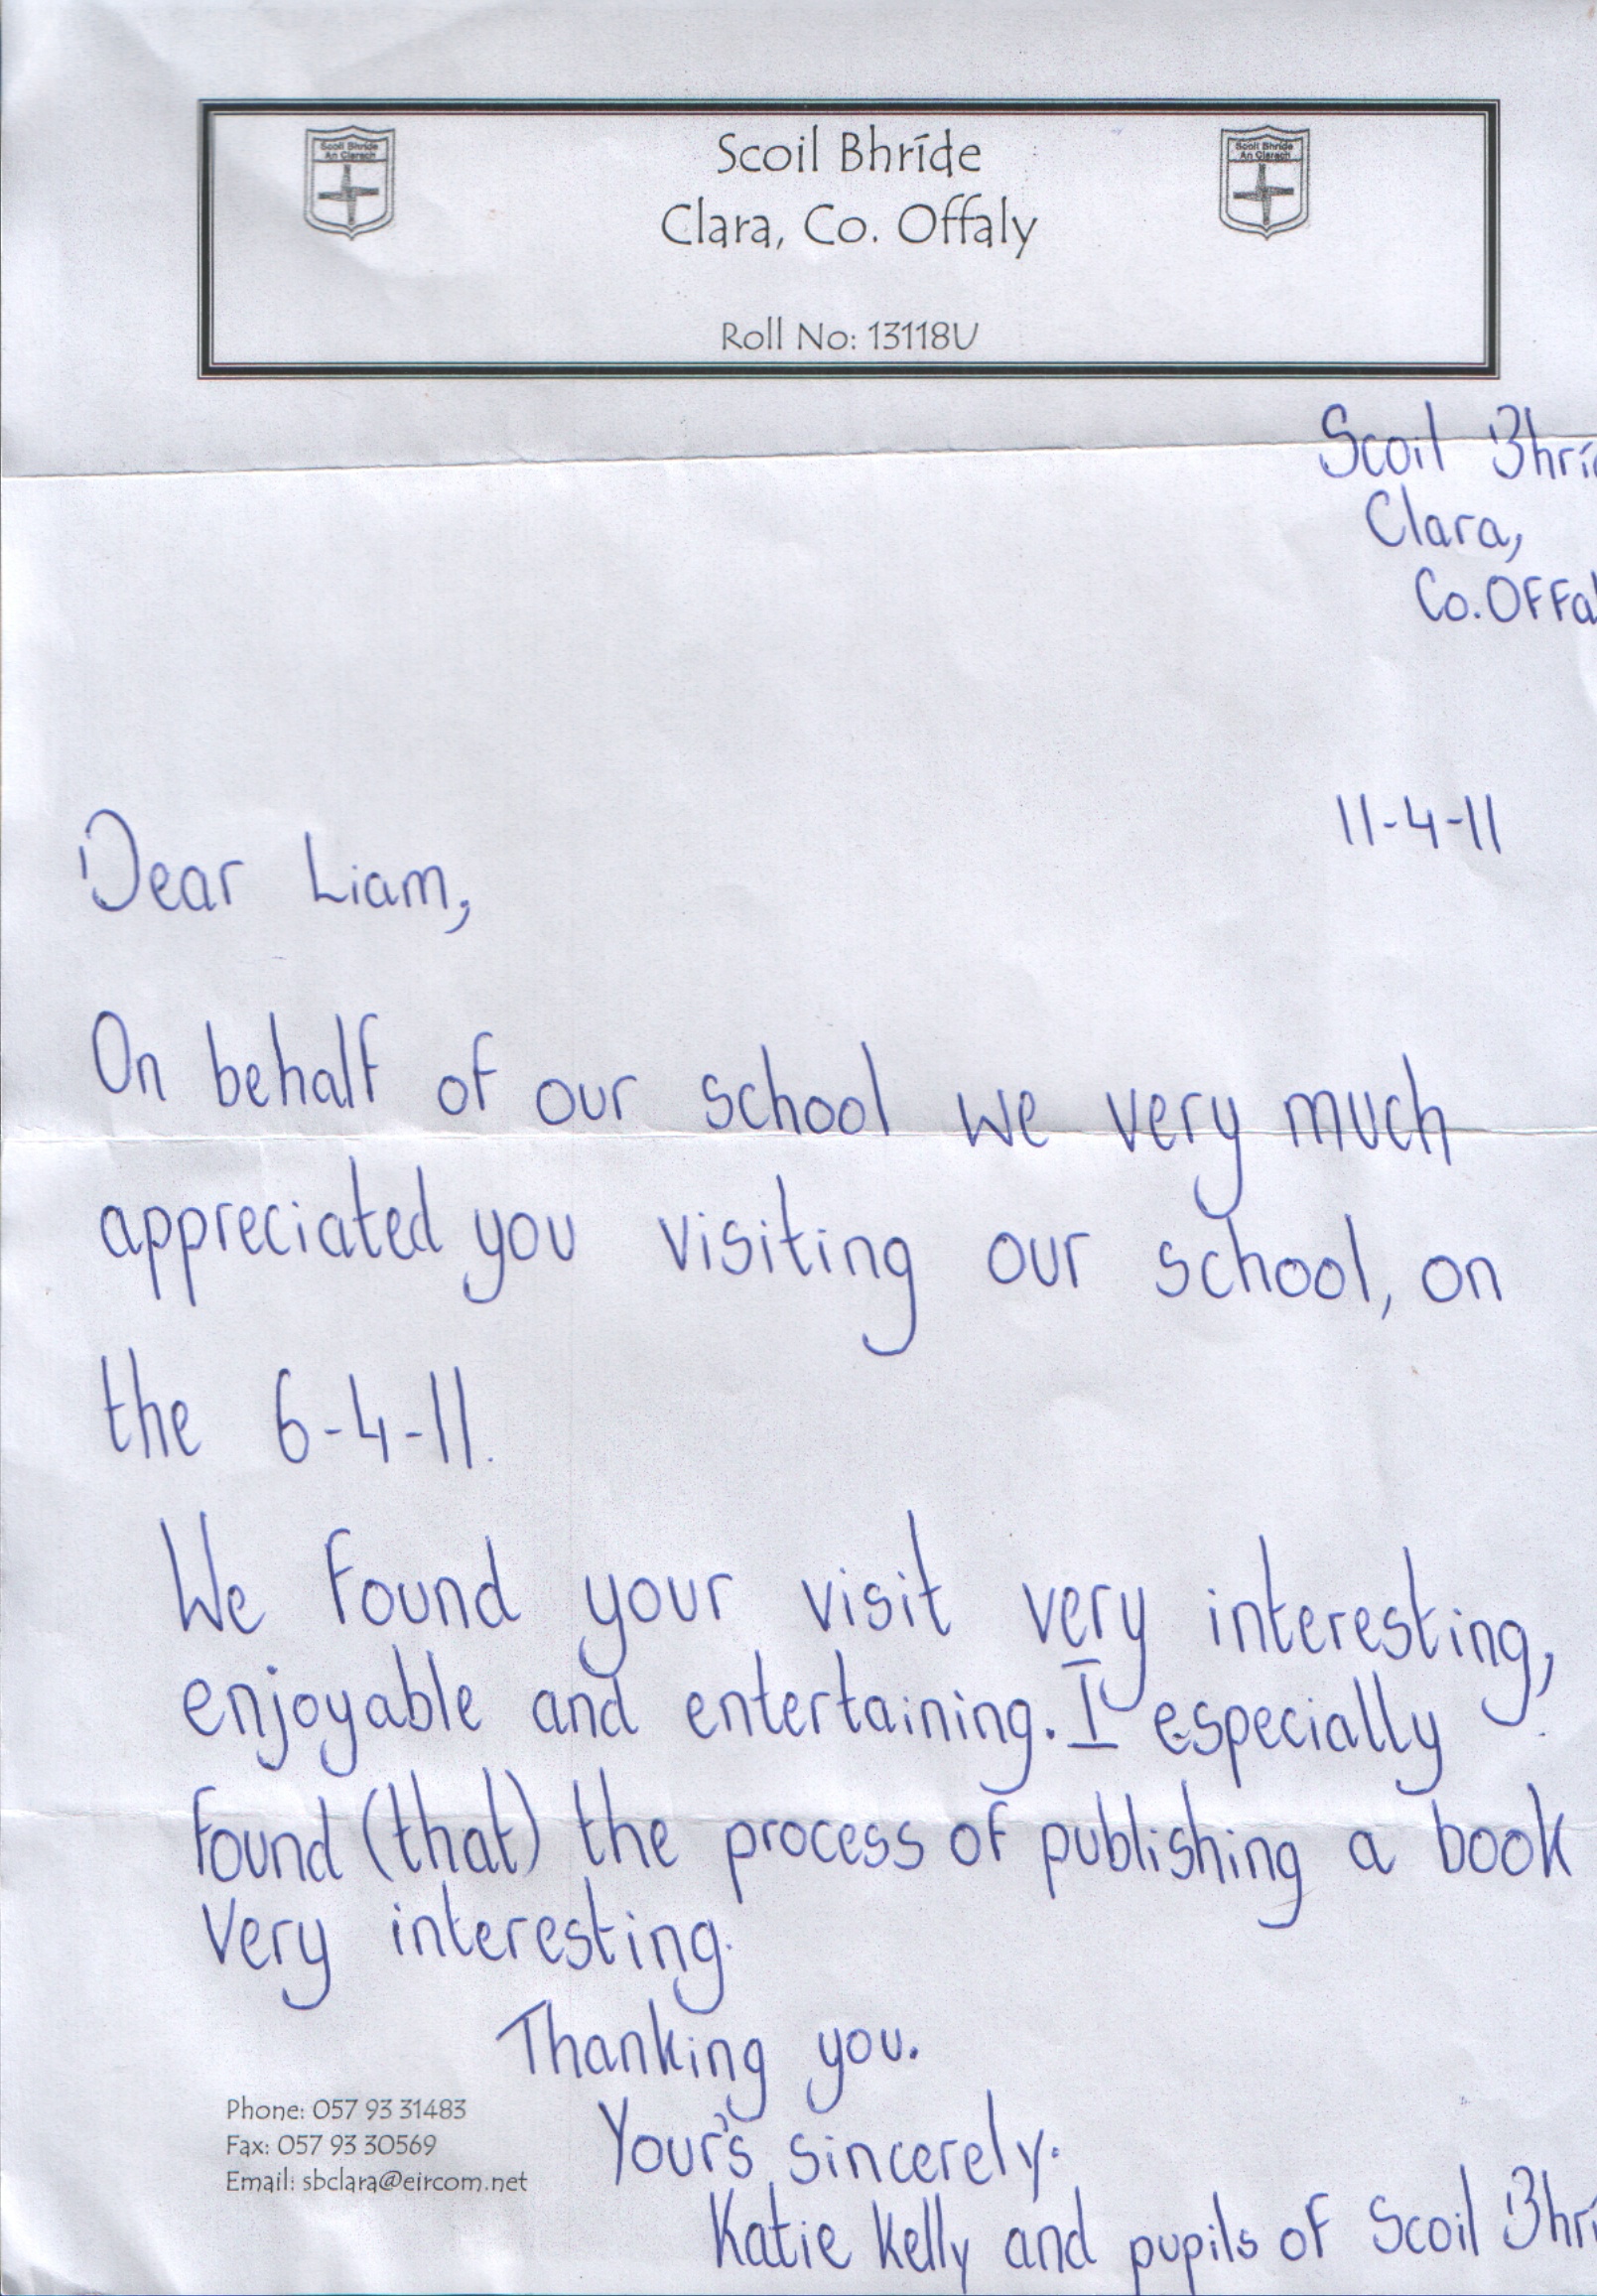 Scoil Bhríde
An Clarach
Scoil Bhríde
An Clarach
Scoil Bhríde
Clara, Co. Offaly
Roll No: 13118U
Scoil Bhrí
Clara,
Co. Offal
11-4-11
Dear Liam,
On behalf of our school we very much
appreciated you visiting our school, on
the 6-4-11.
We found your visit very interesting,
enjoyable and entertaining. I especially
found (that) the process of publishing a book
very interesting.
Thanking you.
Your's sincerely.
Katie Kelly and pupils of Scoil Bhrí
Phone: 057 93 31483
Fax: 057 93 30569
Email: sbclara@eircom.net